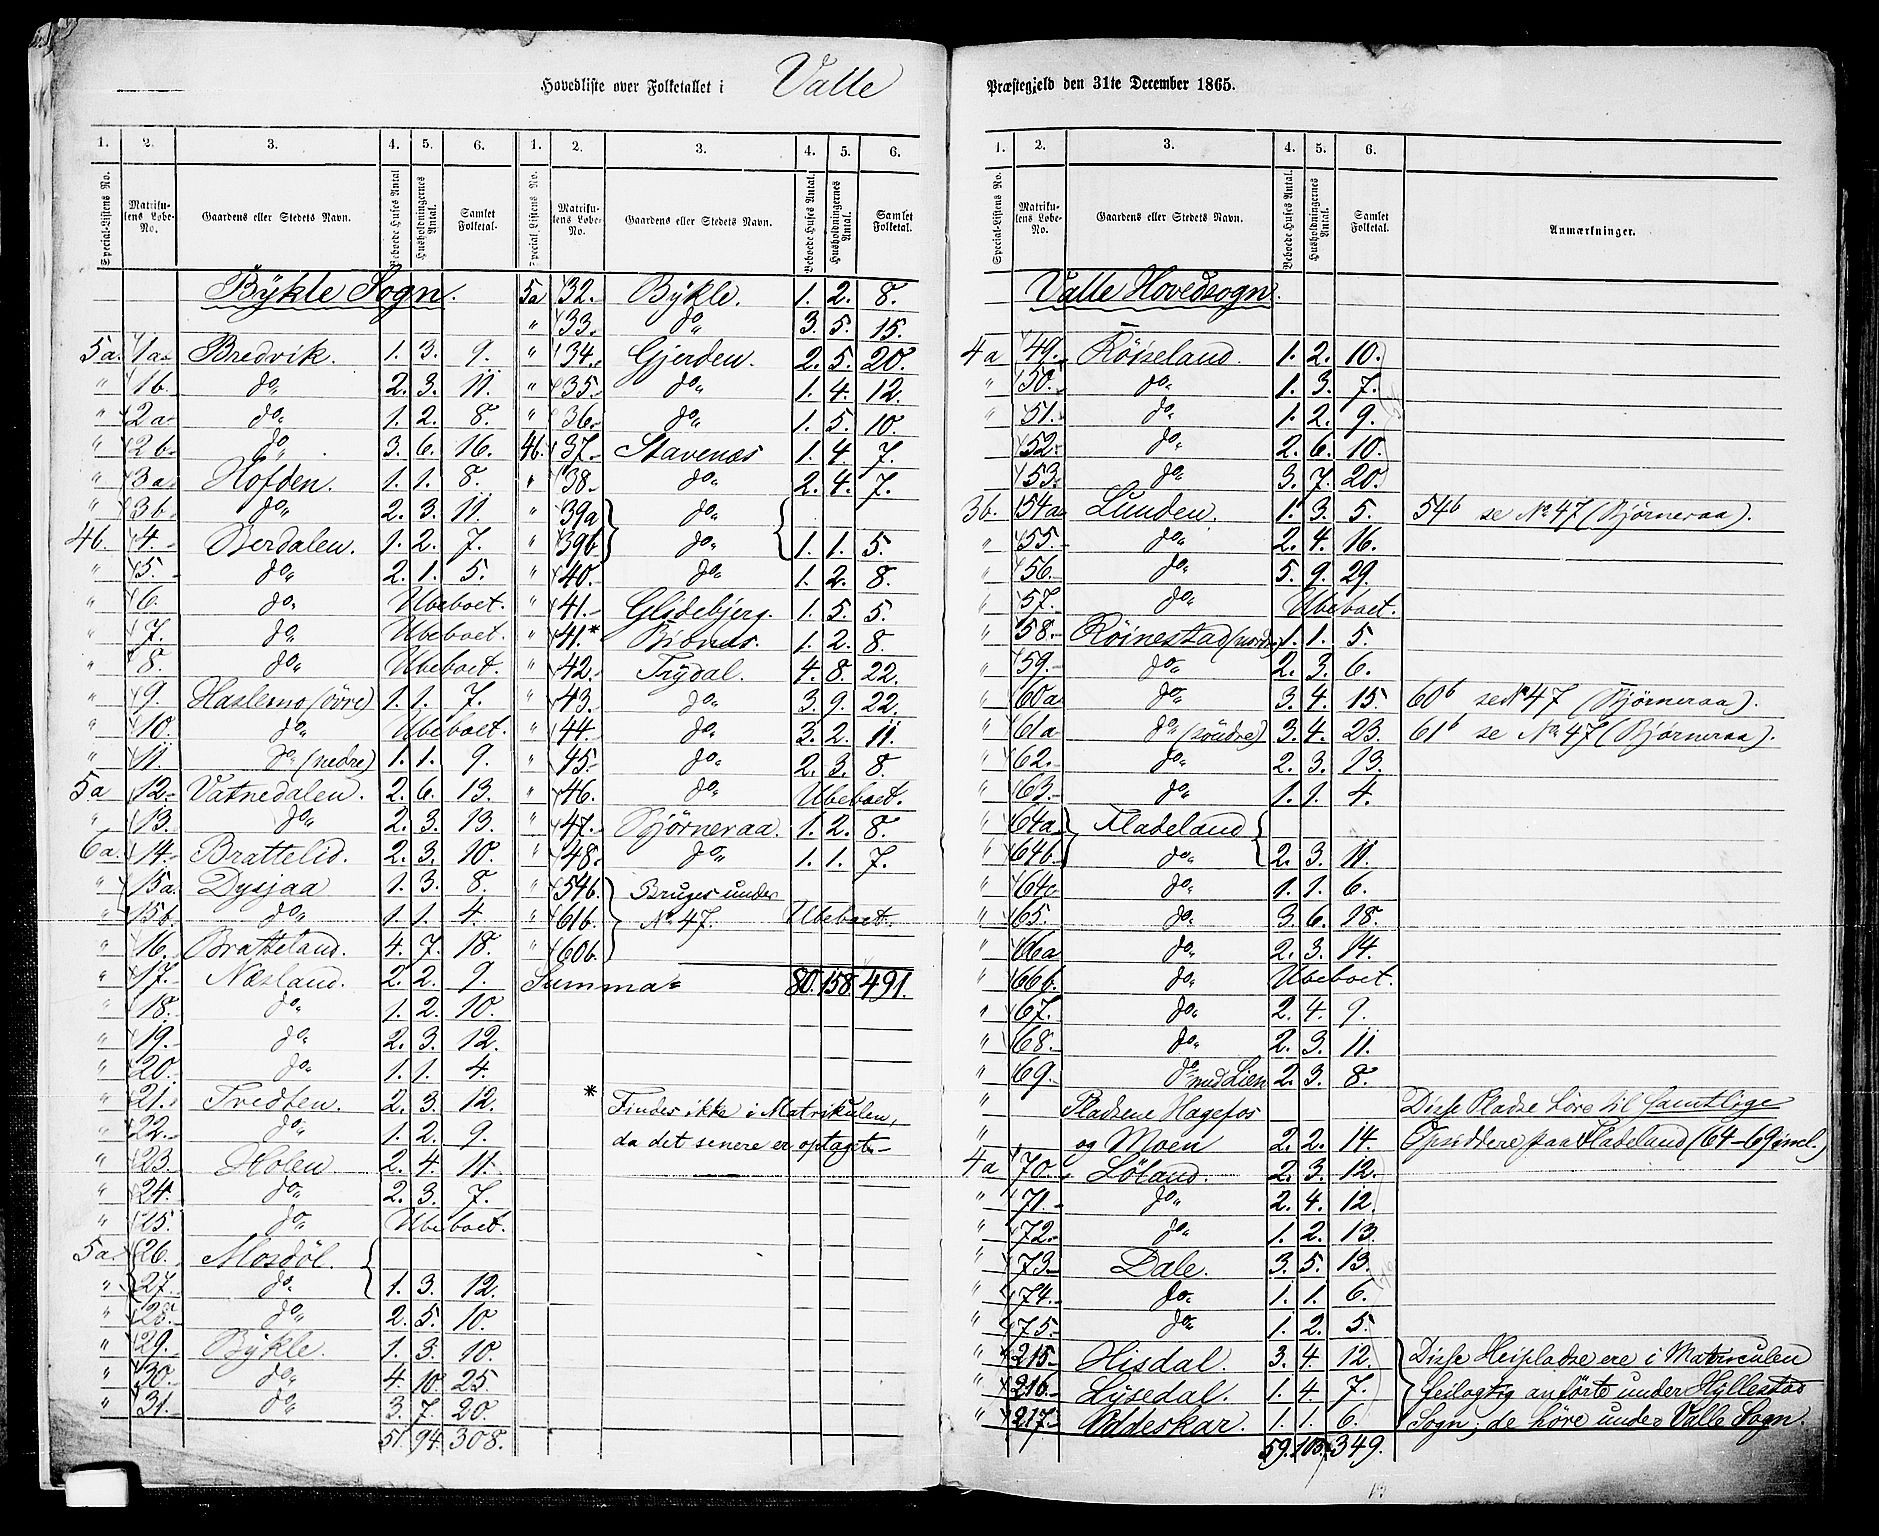 Hovedliste over Folketallet i Valle
1. 2. 3. 4. 5. 6. 1. 2. 3. 4. 5. 6.
Special-Listens No. Matrikulens Løbe-No. Gaardens eller Stedets Navn. Beboede Huses Antal Husholdningernes Antal. Samlet Folketal. Special-Listens No. Matrikulens Løbe-No. Gaardens eller Stedets Navn. Beboede Huses Antal. Husholdningernes Antal. Samlet Folketal.
Bykle Sogn.
5a. 1a. Bredvik. 1. 3. 9.
" 1b. do 2. 3. 11.
" 2a. do 1. 2. 8.
" 2b. do 3. 6. 16.
" 3a. Hofden. 1. 1. 8.
" 3b. do 2. 3. 11.
4b. 4. Berdalen. 1. 2. 7.
" 5. do 2. 1. 5.
" 6. do Ubeboet.
" 7. do Ubeboet.
" 8. do Ubeboet.
" 9. Haslemo (övre) 1. 1. 7.
" 10. do Ubeboet.
" 11. do (nedre) 1. 1. 9.
5a 12. Vatnedalen. 2. 6. 13.
" 13. do 2. 3. 13.
6a. 14. Brattelid. 2. 3. 10.
" 15a. Dysjaa 1. 3. 8.
" 15b. do 1. 1. 4.
" 16. Bratteland. 4. 7. 18.
" 17. Næsland. 2. 2. 9.
" 18. do 1. 2. 10.
" 19. do 2. 3. 12.
" 20. do 1. 1. 4.
" 21. Tvedten. 2. 3. 12.
" 22. do 1. 2. 9.
" 23. Holen 2. 4. 11.
" 24. do 2. 3. 7.
" 25. do Ubeboet.
5a. 26. Mosdøl.
" 27. do 1. 3. 12.
" 28. do 2. 5. 10.
" 29. Bykle. 1. 3. 10.
" 30. do 4. 10. 25.
" 31. do 3. 7. 20.
51. 94. 308.
5a 32. Bykle. 1. 2. 8.
" 33. do 3. 5. 15.
" 34. Gjerden. 2. 5. 20.
" 35. do 1. 4. 12.
" 36. do 1. 5. 10.
4b. 37. Stavenæs 1. 4. 7.
" 38. do 2. 4. 7.
" 39a do
" 39b do 1. 1. 5.
" 40. do 1. 2. 8.
" 41. Glidebjerg. 1. 5. 5.
" 41* 1. 2. 8.
" 42. Trydal. 4. 8. 22.
" 43. do 3. 9. 22.
" 44. do 3. 2. 11.
" 45. do 2. 3. 8.
" 46. do Ubeboet.
" 47. Bjørneraa. 1. 2. 8.
" 48. do 1. 1. 7.
" 54b. Bruges under
" 61b. No 47. Ubeboet.
" 60b.
Summa 80. 158 491.
* Findes ikke i Matrikulen,
da det senere er optaget.
Præstegjeld den 31te December 1865.
1. 2. 3. 4. 5. 6.
Special-Listens No. Matrikulens Løbe-No. Gaardens eller Stedets Navn. Beboede Huses Antal. Husholdningernes Antal. Samlet Folketal. Anmærkninger.
Valle Hovedsogn.
4a 49. Röiseland. 1. 2. 10.
" 50. do 1. 3. 7.
" 51. do 1. 2. 9.
" 52. do 2. 6. 10.
" 53. do 3. 7. 20.
3b. 54a Lunden. 1. 3. 5. 54b se No 47 (Bjørneraa).
" 55. do 2. 4. 16.
" 56. do 5. 9. 29.
" 57. do Ubeboet.
" 58. Röinestad (nordre) 1. 1. 5.
" 59. do 2. 3. 6.
" 60a do 3. 4. 15. 60b se No 47 (Bjørneraa).
" 61a do (söndre) 3. 4. 23. 61b se No 47 (Bjørneraa).
" 62. do 2. 3. 13.
" 63. do 1. 1. 4.
" 64a Fladeland
" 64b. do 2. 3. 11.
" 64c do 1. 1. 6.
" 65. do 3. 6. 18.
" 66a do 2. 3. 14.
" 66b. do Ubeboet.
" 67. do 2. 4. 9.
" 68. do 2. 3. 11.
" 69. do med Lien 2. 3. 8.
" Pladsene Hagefos Disse Pladse höre til samtlige
" og Moen 2. 2. 14. Opsiddere paa Fladeland (64-69 incl.)
4a 70. Löland. 2. 3. 12.
" 71. do 2. 4. 12.
" 72. do 1. 2. 13.
" 73. Dale. 3. 5. 13.
" 74. do 1. 1. 6.
" 75. do 1. 2. 5.
" 215. Hisdal. 3. 4. 12. Disse Heipladse ere i Matriculen
" 216. Lysedal. 1. 4. 7. feilagtig anförte under Hyllestad
" 217. 1. 1. 6. Sogn; de höre under Valle Sogn.
59. 103. 349.